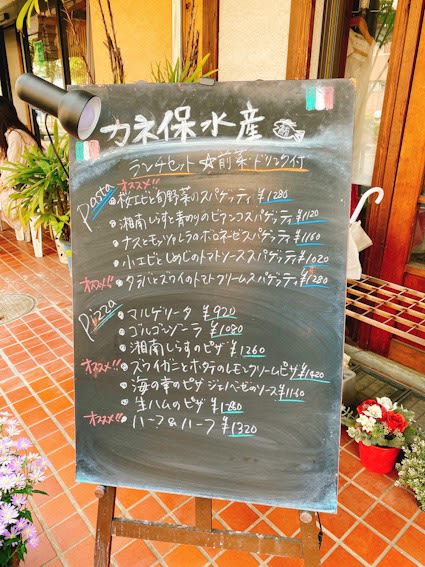 カネ保水産
ランチセット ☆前菜・ドリンク付
Pasta
オススメ!!
・桜エビと旬野菜のスパゲッティ ¥1280
・湘南しらすと青のりのビアンコスパゲッティ ¥1120
・ナスとモッツァレラのボロネーゼスパゲッティ ¥1150
・小エビとしめじのトマトソーススパゲッティ ¥1020
オススメ!! ・タラバとズワイのトマトクリームスパゲッティ ¥1280
Pizza
・マルゲリータ ¥920
・ゴルゴンゾーラ ¥1080
・湘南しらすのピザ ¥1260
オススメ!! ・ズワイガニとホタテのレモンクリームピザ ¥1420
・海の幸のピザ ジェノベーゼのソース ¥1160
・生ハムのピザ ¥1280
オススメ!! ・ハーフ&ハーフ ¥1320